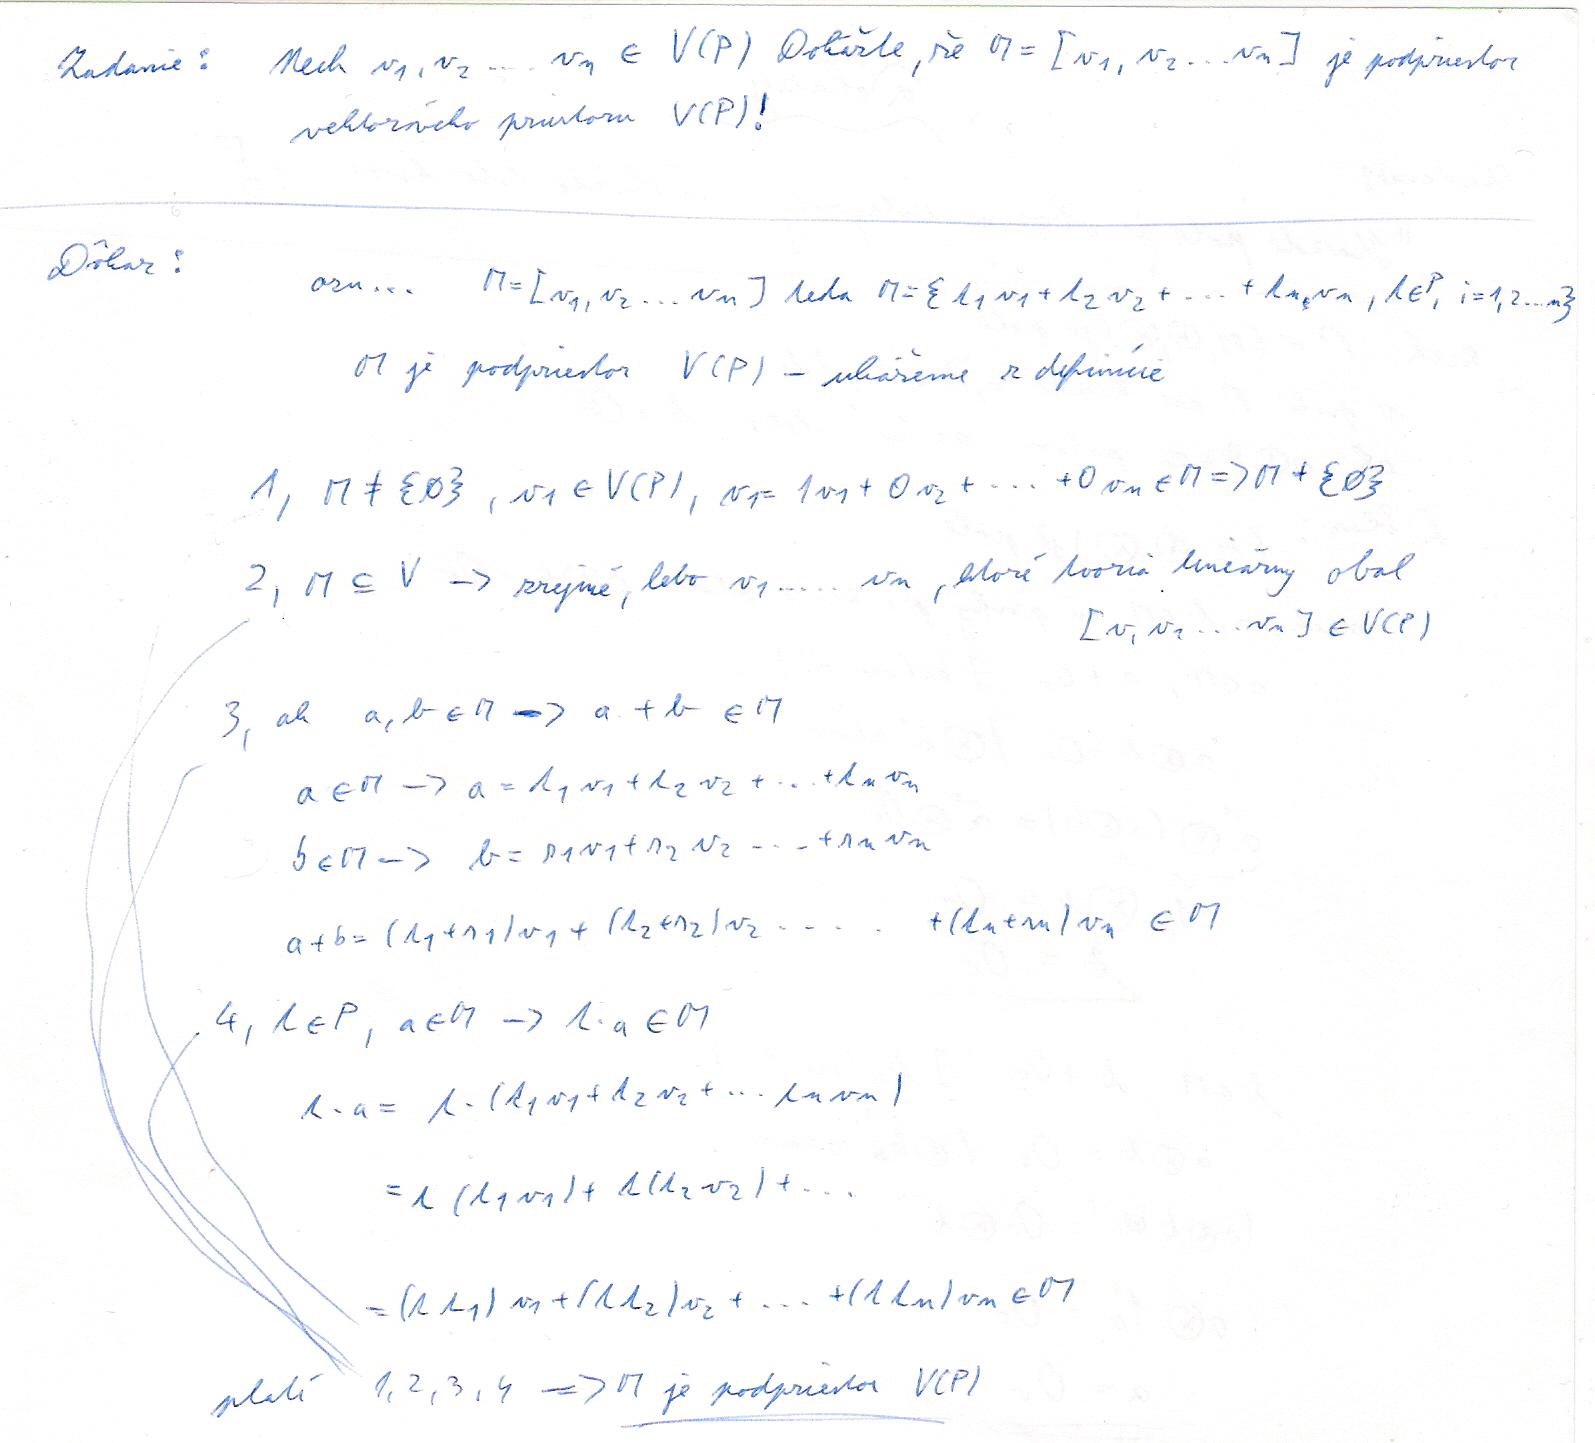 Zadanie: Nech v1, v2 .... vn ∈ V(P) Dokážte, že M = [v1, v2...vn] je podpriestor
vektorového priestoru V(P)!
Dôkaz:
ozn... M=[v1, v2...vn] teda M={k1v1+k2v2+...+kn.vn, k∈P, i=1,2...n}
M je podpriestor V(P) – ukážeme z definície
1, M ≠ {∅}, v1 ∈ V(P), v1= 1v1+0v2+...+0vn∈M=>M ≠ {∅}
2, M ⊆ V -> zrejmé, lebo v1..... vn, ktoré tvoria lineárny obal
[v1 v2...vn] ∈ V(P)
3, ak a, b ∈ M -> a + b ∈ M
a ∈ M -> a = k1v1+k2v2+...+knvn
b ∈ M -> b = r1v1+r2v2...+rnvn
a+b= (k1+r1)v1+(k2+r2)v2..... +(kn+rn)vn ∈ M
4, k∈P, a∈M -> k.a ∈ M
k.a = k.(k1v1+k2v2+...knvn)
=k(k1v1)+k(k2v2)+...
=(kk1)v1+(kk2)v2+...+(kkn)vn∈M
platí 1,2,3,4 => M je podpriestor V(P)